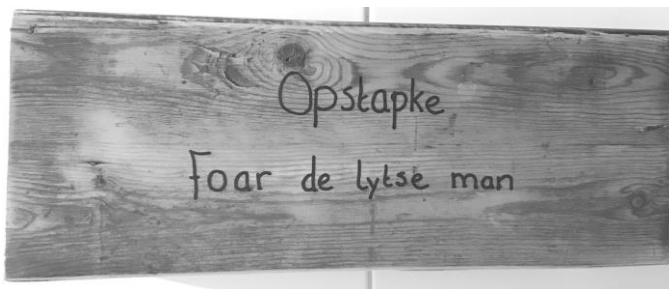 Opstapke
Foar de lytse man